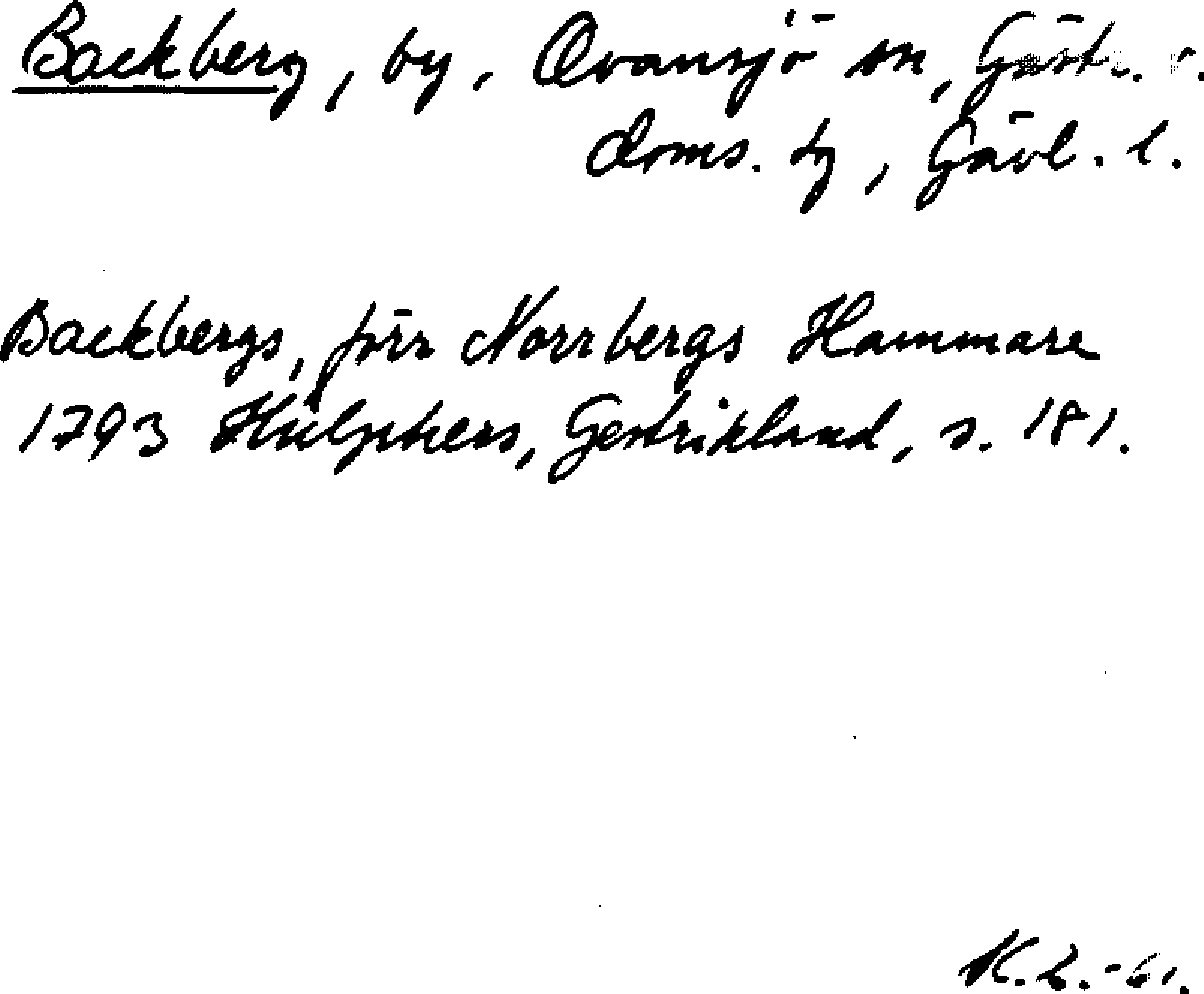 Backberg, by, Ovansjö sn, Gästr. v.
doms. tg, Gävl. l.
Backbergs, förr Norrbergs Hammare
1793 Hülphers, Gestrikland, s. 181.
K.L.-61.